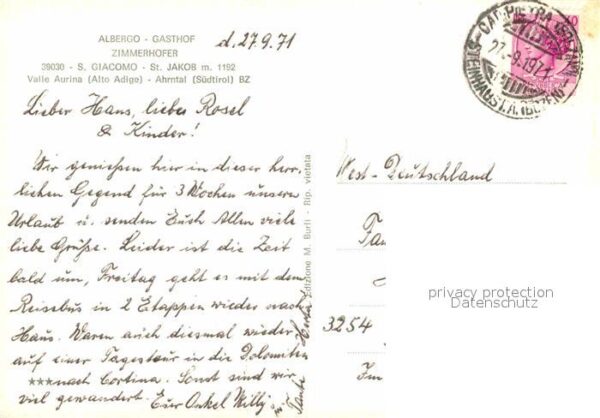 ALBERGO - GASTHOF
ZIMMERHOFER
39030 - S. GIACOMO - St. JAKOB m. 1192
Valle Aurina (Alto Adige) - Ahrntal (Südtirol) BZ
d. 27.9.71
Lieber Hans, liebes Rosel
& Kinder!
Wir genießen hier in dieser herr-
lichen Gegend für 3 Wochen unseren
Urlaub u. senden Euch Allen viele
liebe Grüße. Leider ist die Zeit
bald um, Freitag geht es mit dem
Reisebus in 2 Etappen wieder nach
Haus. Waren auch diesmal wieder
auf einer Tagestour in die Dolomiten
***nach Cortina. Sonst sind wir
viel gewandert. Euer Onkel Willy
Tante Herta
Edizione M. Burli - Rip. vietata
27.-9.1971
West-Deutschland
3254
Im
privacy protection
Datenschutz